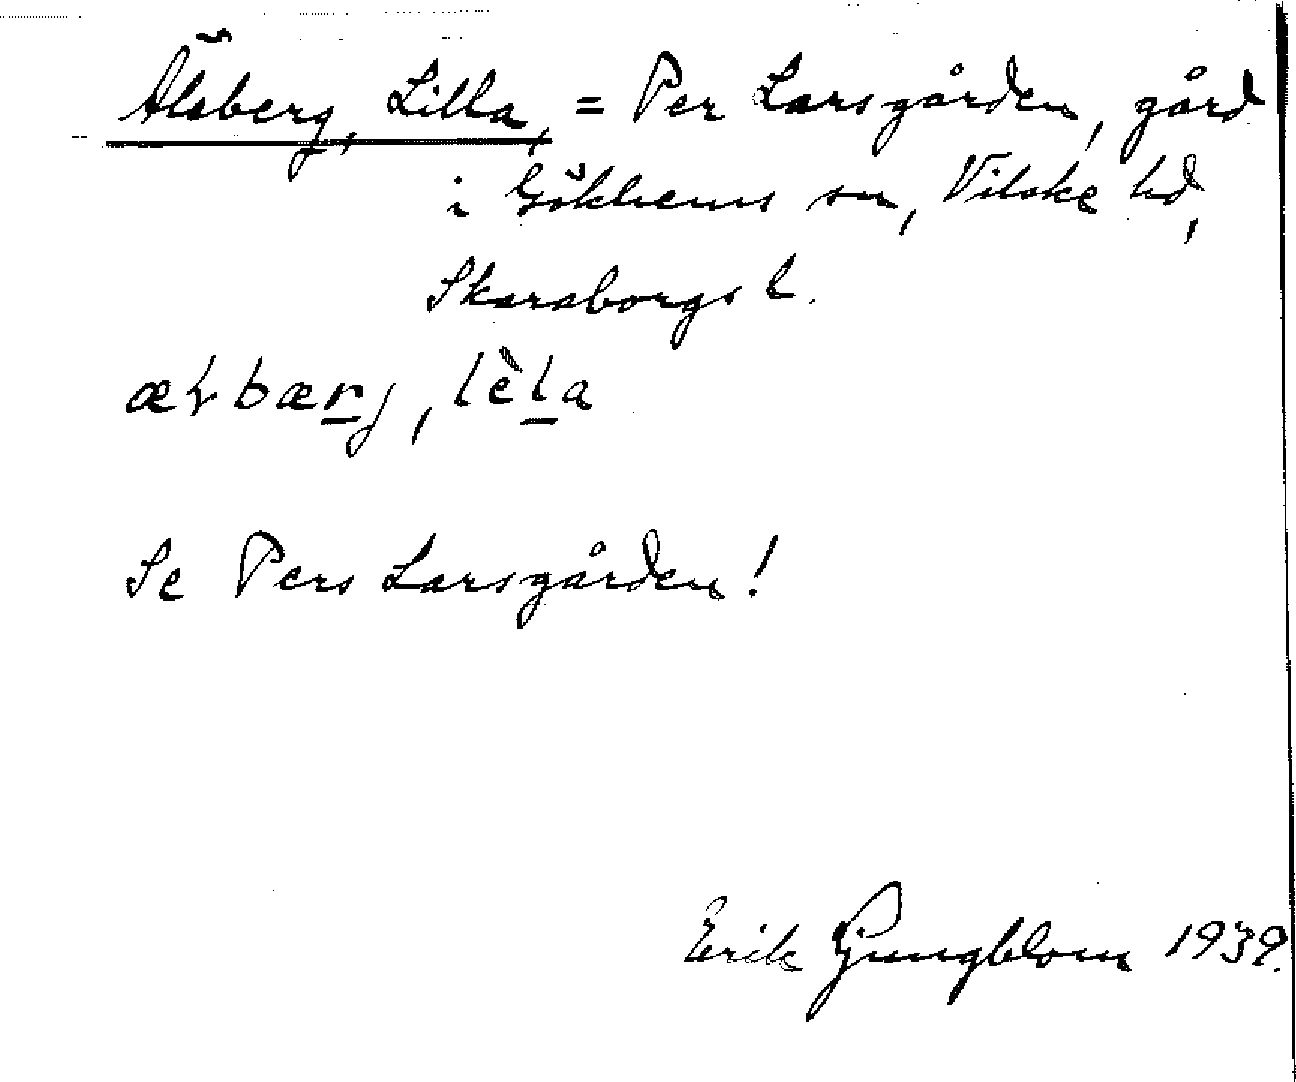 Älsberg, Lilla, = Per Larsgården, gård
i Gökhems sn, Vilske hd,
Skaraborgs l.
æɫbærj, lèla
Se Pers Larsgården!
Erik Ljungblom 1939.